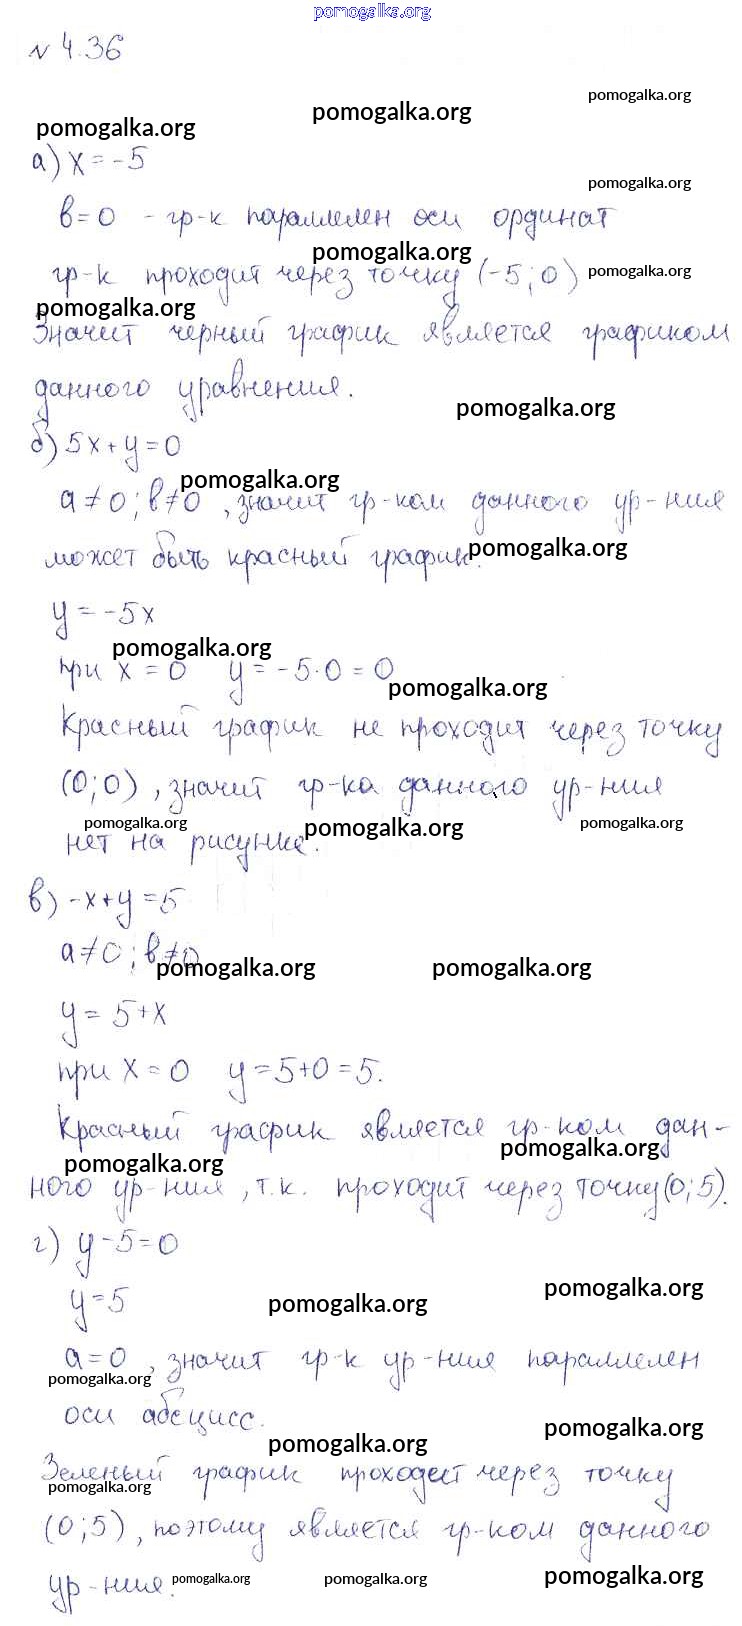 pomogalka.org
№ 4.36
pomogalka.org
pomogalka.org pomogalka.org
а) x = -5
pomogalka.org
в=0 - гр-к параллелен оси ординат
pomogalka.org
гр-к проходит через точку (-5; 0) pomogalka.org
pomogalka.org
Значит черный график является графиком
данного уравнения.
pomogalka.org
б) 5x + y = 0
pomogalka.org
a ≠ 0; в ≠ 0, значит гр-ком данного ур-ния
может быть красный график. pomogalka.org
y = -5x
pomogalka.org
при x = 0 y = -5·0 = 0
pomogalka.org
Красный график не проходит через точку
(0; 0), значит гр-ка данного ур-ния
pomogalka.org pomogalka.org pomogalka.org
нет на рисунке.
в) -x + y = 5
a ≠ 0; в ≠ 0
pomogalka.org pomogalka.org
y = 5 + x
при x = 0 y = 5 + 0 = 5.
Красный график является гр-ком дан-
pomogalka.org pomogalka.org
ного ур-ния, т.к. проходит через точку (0; 5).
г) y - 5 = 0
y = 5
pomogalka.org pomogalka.org
a = 0, значит гр-к ур-ния параллелен
pomogalka.org
оси абсцисс.
pomogalka.org pomogalka.org
Зеленый график проходит через точку
pomogalka.org
(0; 5), поэтому является гр-ком данного
ур-ния. pomogalka.org pomogalka.org pomogalka.org